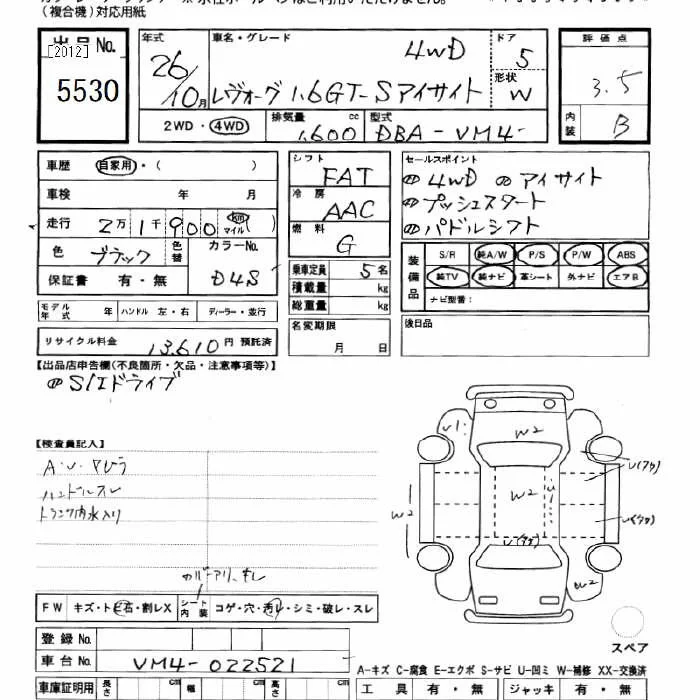 (複合機)対応用紙
出品No.
[2012]
5530
年式 車名・グレード ドア 評価点
26/10月 4WD 5 3.5
レヴォーグ 1.6GT-Sアイサイト 形状 W
2WD・4WD 排気量 1,600 cc 型式 DBA-VM4 内装 B
車歴 自家用・( )
車検 年 月
走行 2万1千900 km マイル( )
色 ブラック 色替 カラーNo. D4S
保証書 有・無
モデル年式 年 ハンドル 左・右 ディーラー・並行
リサイクル料金 13,610円 預託済
シフト FAT
冷房 AAC
燃料 G
乗車定員 5名
積載量 kg
総重量 kg
名変期限
月 日
セールスポイント
4WD アイサイト
プッシュスタート
パドルシフト
装備品 S/R 純A/W P/S P/W ABS
純TV 純ナビ 革シート 外ナビ エアB
ナビ型番:
後日品
【出品店申告欄(不良箇所・欠品・注意事項等)】
S/Iドライブ
【検査員記入】
ハンドルスレ
トランク内水入り
FW キズ・トビ石・割レX シート内装 コゲ・穴・汚レ・シミ・破レ・スレ
登録No.
車台No. VM4-022521
車庫証明用 長さ cm 幅 cm 高さ cm
U1. W2
U(アカ)
W2 W2 U
U(アカ)
U(アカ)
W2
スペア
A-キズ C-腐食 E-エクボ S-サビ U-凹ミ W-補修 XX-交換済
工具 有・無 ジャッキ 有・無